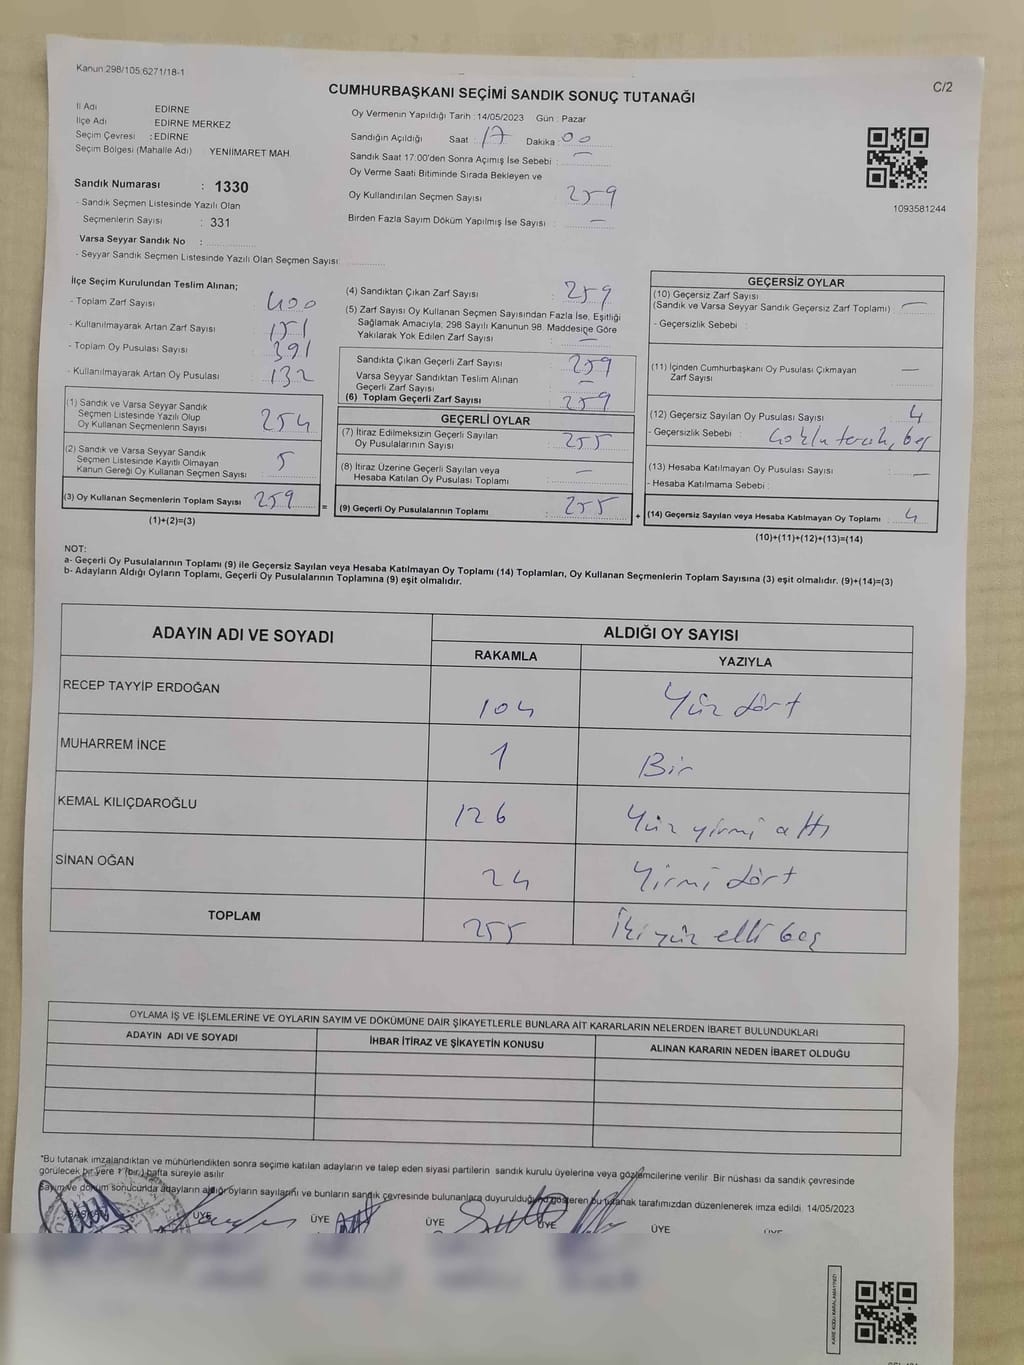 Kanun:298/105.6271/18-1
C/2
CUMHURBAŞKANI SEÇİMİ SANDIK SONUÇ TUTANAĞI
İl Adı EDİRNE
İlçe Adı EDİRNE MERKEZ
Seçim Çevresi : EDİRNE
Seçim Bölgesi (Mahalle Adı) YENİİMARET MAH.
Sandık Numarası : 1330
- Sandık Seçmen Listesinde Yazılı Olan
Seçmenlerin Sayısı : 331
Varsa Seyyar Sandık No :
- Seyyar Sandık Seçmen Listesinde Yazılı Olan Seçmen Sayısı:
Oy Vermenin Yapıldığı Tarih : 14/05/2023 Gün : Pazar
Sandığın Açıldığı Saat : 17 Dakika : 00
Sandık Saat 17:00'den Sonra Açımış İse Sebebi : —
Oy Verme Saati Bitiminde Sırada Bekleyen ve
Oy Kullandırılan Seçmen Sayısı : 259
Birden Fazla Sayım Döküm Yapılmış İse Sayısı : —
1093581244
İlçe Seçim Kurulundan Teslim Alınan;
- Toplam Zarf Sayısı : 400
- Kullanılmayarak Artan Zarf Sayısı : 151
- Toplam Oy Pusulası Sayısı : 391
- Kullanılmayarak Artan Oy Pusulası : 132
(1) Sandık ve Varsa Seyyar Sandık
Seçmen Listesinde Yazılı Olup
Oy Kullanan Seçmenlerin Sayısı : 254
(2) Sandık ve Varsa Seyyar Sandık
Seçmen Listesinde Kayıtlı Olmayan
Kanun Gereği Oy Kullanan Seçmen Sayısı : 5
(3) Oy Kullanan Seçmenlerin Toplam Sayısı : 259
(1)+(2)=(3)
(4) Sandıktan Çıkan Zarf Sayısı : 259
(5) Zarf Sayısı Oy Kullanan Seçmen Sayısından Fazla İse, Eşitliği
Sağlamak Amacıyla; 298 Sayılı Kanunun 98. Maddesine Göre
Yakılarak Yok Edilen Zarf Sayısı : —
Sandıkta Çıkan Geçerli Zarf Sayısı : 259
Varsa Seyyar Sandıktan Teslim Alınan
Geçerli Zarf Sayısı : —
(6) Toplam Geçerli Zarf Sayısı : 259
GEÇERLİ OYLAR
(7) İtiraz Edilmeksizin Geçerli Sayılan
Oy Pusulalarının Sayısı : 255
(8) İtiraz Üzerine Geçerli Sayılan veya
Hesaba Katılan Oy Pusulası Toplamı : —
= (9) Geçerli Oy Pusulalarının Toplamı : 255
GEÇERSİZ OYLAR
(10) Geçersiz Zarf Sayısı
(Sandık ve Varsa Seyyar Sandık Geçersiz Zarf Toplamı) : —
- Geçersizlik Sebebi :
(11) İçinden Cumhurbaşkanı Oy Pusulası Çıkmayan
Zarf Sayısı : —
(12) Geçersiz Sayılan Oy Pusulası Sayısı : 4
- Geçersizlik Sebebi : Çoklu tercih, boş
(13) Hesaba Katılmayan Oy Pusulası Sayısı : —
- Hesaba Katılmama Sebebi :
+ (14) Geçersiz Sayılan veya Hesaba Katılmayan Oy Toplamı : 4
(10)+(11)+(12)+(13)=(14)
NOT:
a- Geçerli Oy Pusulalarının Toplamı (9) ile Geçersiz Sayılan veya Hesaba Katılmayan Oy Toplamı (14) Toplamları, Oy Kullanan Seçmenlerin Toplam Sayısına (3) eşit olmalıdır. (9)+(14)=(3)
b- Adayların Aldığı Oyların Toplamı, Geçerli Oy Pusulalarının Toplamına (9) eşit olmalıdır.
ADAYIN ADI VE SOYADI ALDIĞI OY SAYISI
RAKAMLA YAZIYLA
RECEP TAYYİP ERDOĞAN 104 Yüz dört
MUHARREM İNCE 1 Bir
KEMAL KILIÇDAROĞLU 126 Yüz yirmi altı
SİNAN OĞAN 24 Yirmi dört
TOPLAM 255 İki yüz elli beş
OYLAMA İŞ VE İŞLEMLERİNE VE OYLARIN SAYIM VE DÖKÜMÜNE DAİR ŞİKAYETLERLE BUNLARA AİT KARARLARIN NELERDEN İBARET BULUNDUKLARI
ADAYIN ADI VE SOYADI İHBAR İTİRAZ VE ŞİKAYETİN KONUSU ALINAN KARARIN NEDEN İBARET OLDUĞU
*Bu tutanak imzalandıktan ve mühürlendikten sonra seçime katılan adayların ve talep eden siyasi partilerin sandık kurulu üyelerine veya gözlemcilerine verilir Bir nüshası da sandık çevresinde
görülecek bir yere 1 (bir) hafta süreyle asılır
Sayım ve döküm sonucunda adayların aldığı oyların sayılarını ve bunların sandık çevresinde bulunanlara duyurulduğunu gösteren bu tutanak tarafımızdan düzenlenerek imza edildi. 14/05/2023
ÜYE ÜYE ÜYE ÜYE ÜYE ÜYE
KARE KODU KARALAMAYINIZ!